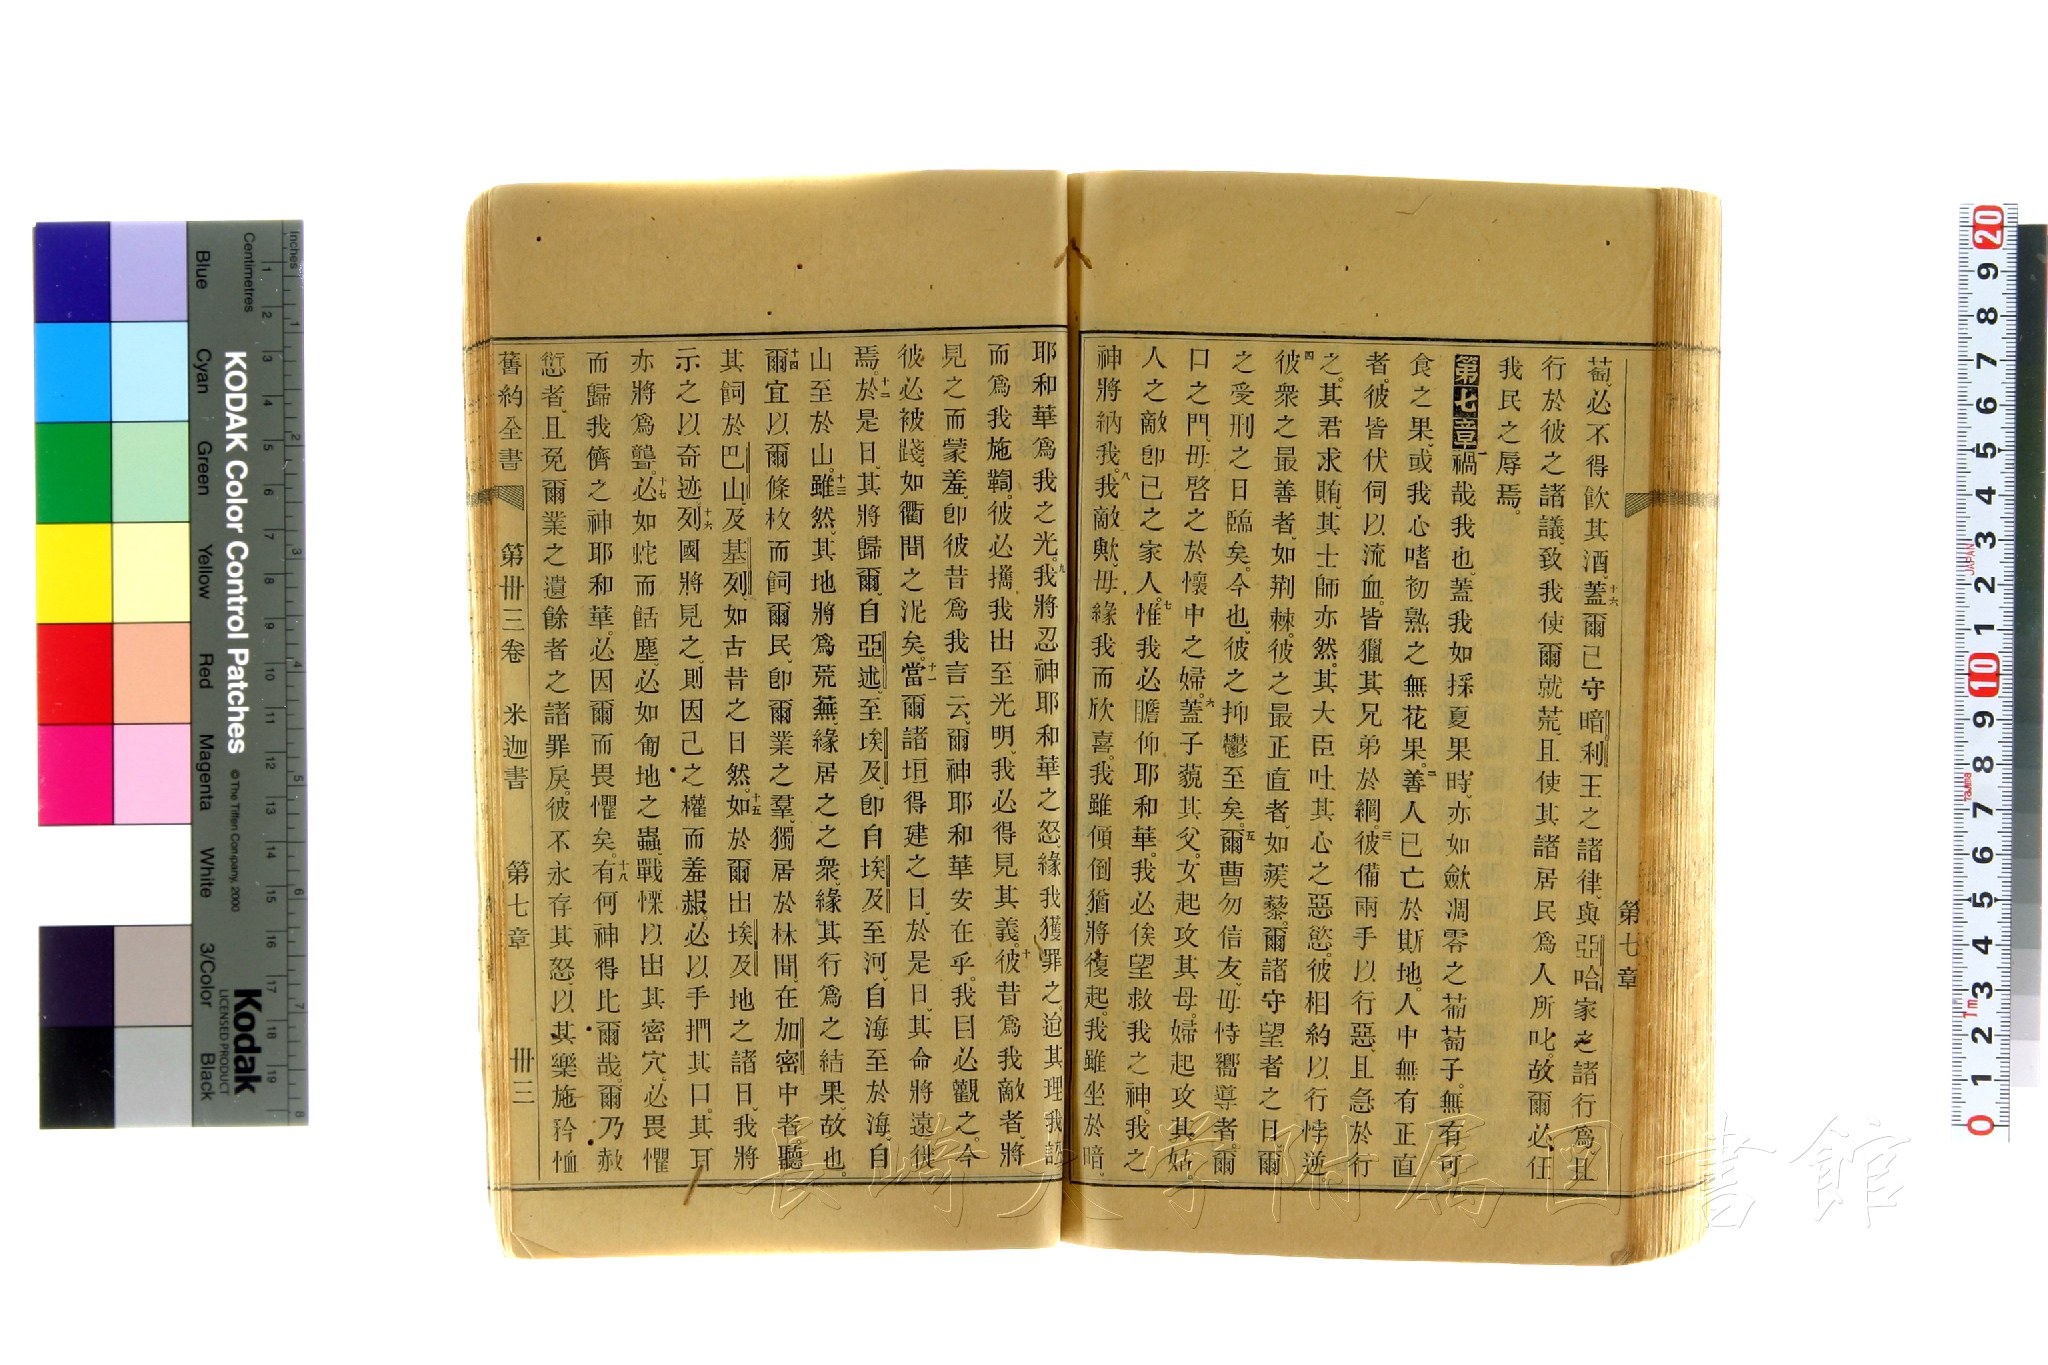 第七章
萄、必不得飲其酒、十六蓋爾已守暗利王之諸律、與亞哈家之諸行爲、且
行於彼之諸議、致我使爾就荒、且使其諸居民爲人所叱、故爾必任
我民之辱焉。
第七章 一禍哉我也、蓋我如採夏果時、亦如歛凋零之葡萄子。無有可
食之果、或我心嗜初熟之無花果。二善人已亡於斯地。人中無有正直
者。彼皆伏伺以流血。皆獵其兄弟於網。三彼備兩手以行惡、且急於行
之。其君求賄、其士師亦然。其大臣吐其心之惡慾。彼相約以行悖逆。
四彼衆之最善者、如荆棘。彼之最正直者、如蒺藜。爾諸守望者之日、爾
之受刑之日臨矣。今也、彼之抑鬱至矣。五爾曹勿信友、毋恃嚮導者。爾
口之門、毋啓之於懷中之婦。六蓋子藐其父。女起攻其母。婦起攻其姑。
人之敵卽己之家人。七惟我必瞻仰耶和華。我必俟望救我之神。我之
神將納我。八我敵歟、毋緣我而欣喜。我雖傾倒猶將復起。我雖坐於暗、
耶和華爲我之光。九我將忍神耶和華之怒、緣我獲罪之。迨其理我訟
而爲我施鞫。彼必攜我出至光明、我必得見其義。十彼昔爲我敵者、將
見之而蒙羞、卽彼昔爲我言云、爾神耶和華安在乎。我目必觀之。今
彼必被踐、如衢間之泥矣。十一當爾諸垣得建之日、於是日、其命將遠徙
焉。十二於是日、其將歸爾、自亞述、至埃及、卽自埃及至河、自海至於海、自
山至於山。十三雖然、其地將爲荒蕪、緣居之之衆、緣其行爲之結果、故也。
十四爾宜以爾條杖而飼爾民、卽爾業之羣、獨居於林間、在加密中者、聽
其飼於巴山、及基列、如古昔之日然。十五如於爾出埃及地之諸日、我將
示之以奇迹。十六列國將見之、則因己之權而羞赧。必以手捫其口。其耳
亦將爲聾。十七必如蛇而餂塵、必如匍地之蟲、戰慄以出其密穴。必畏懼
而歸我儕之神耶和華。必因爾而畏懼矣。十八有何神得比爾哉。爾乃赦
愆者、且免爾業之遺餘者之諸罪戾。彼不永存其怒、以其樂施矜恤
舊約全書 第卅三卷 米迦書 第七章 卅三
KODAK Color Control Patches
© The Tiffen Company, 2000
Kodak
LICENSED PRODUCT
Inches
Centimetres
Blue Cyan Green Yellow Red Magenta White 3/Color Black
1 2 3 4 5 6 7 8 9 10 11 12 13 14 15 16 17 18 19
1 2 3 4 5 6 7 8
20 9 8 7 6 5 4 3 2 1 10 9 8 7 6 5 4 3 2 1 0
JAPAN
長崎大学附属図書館